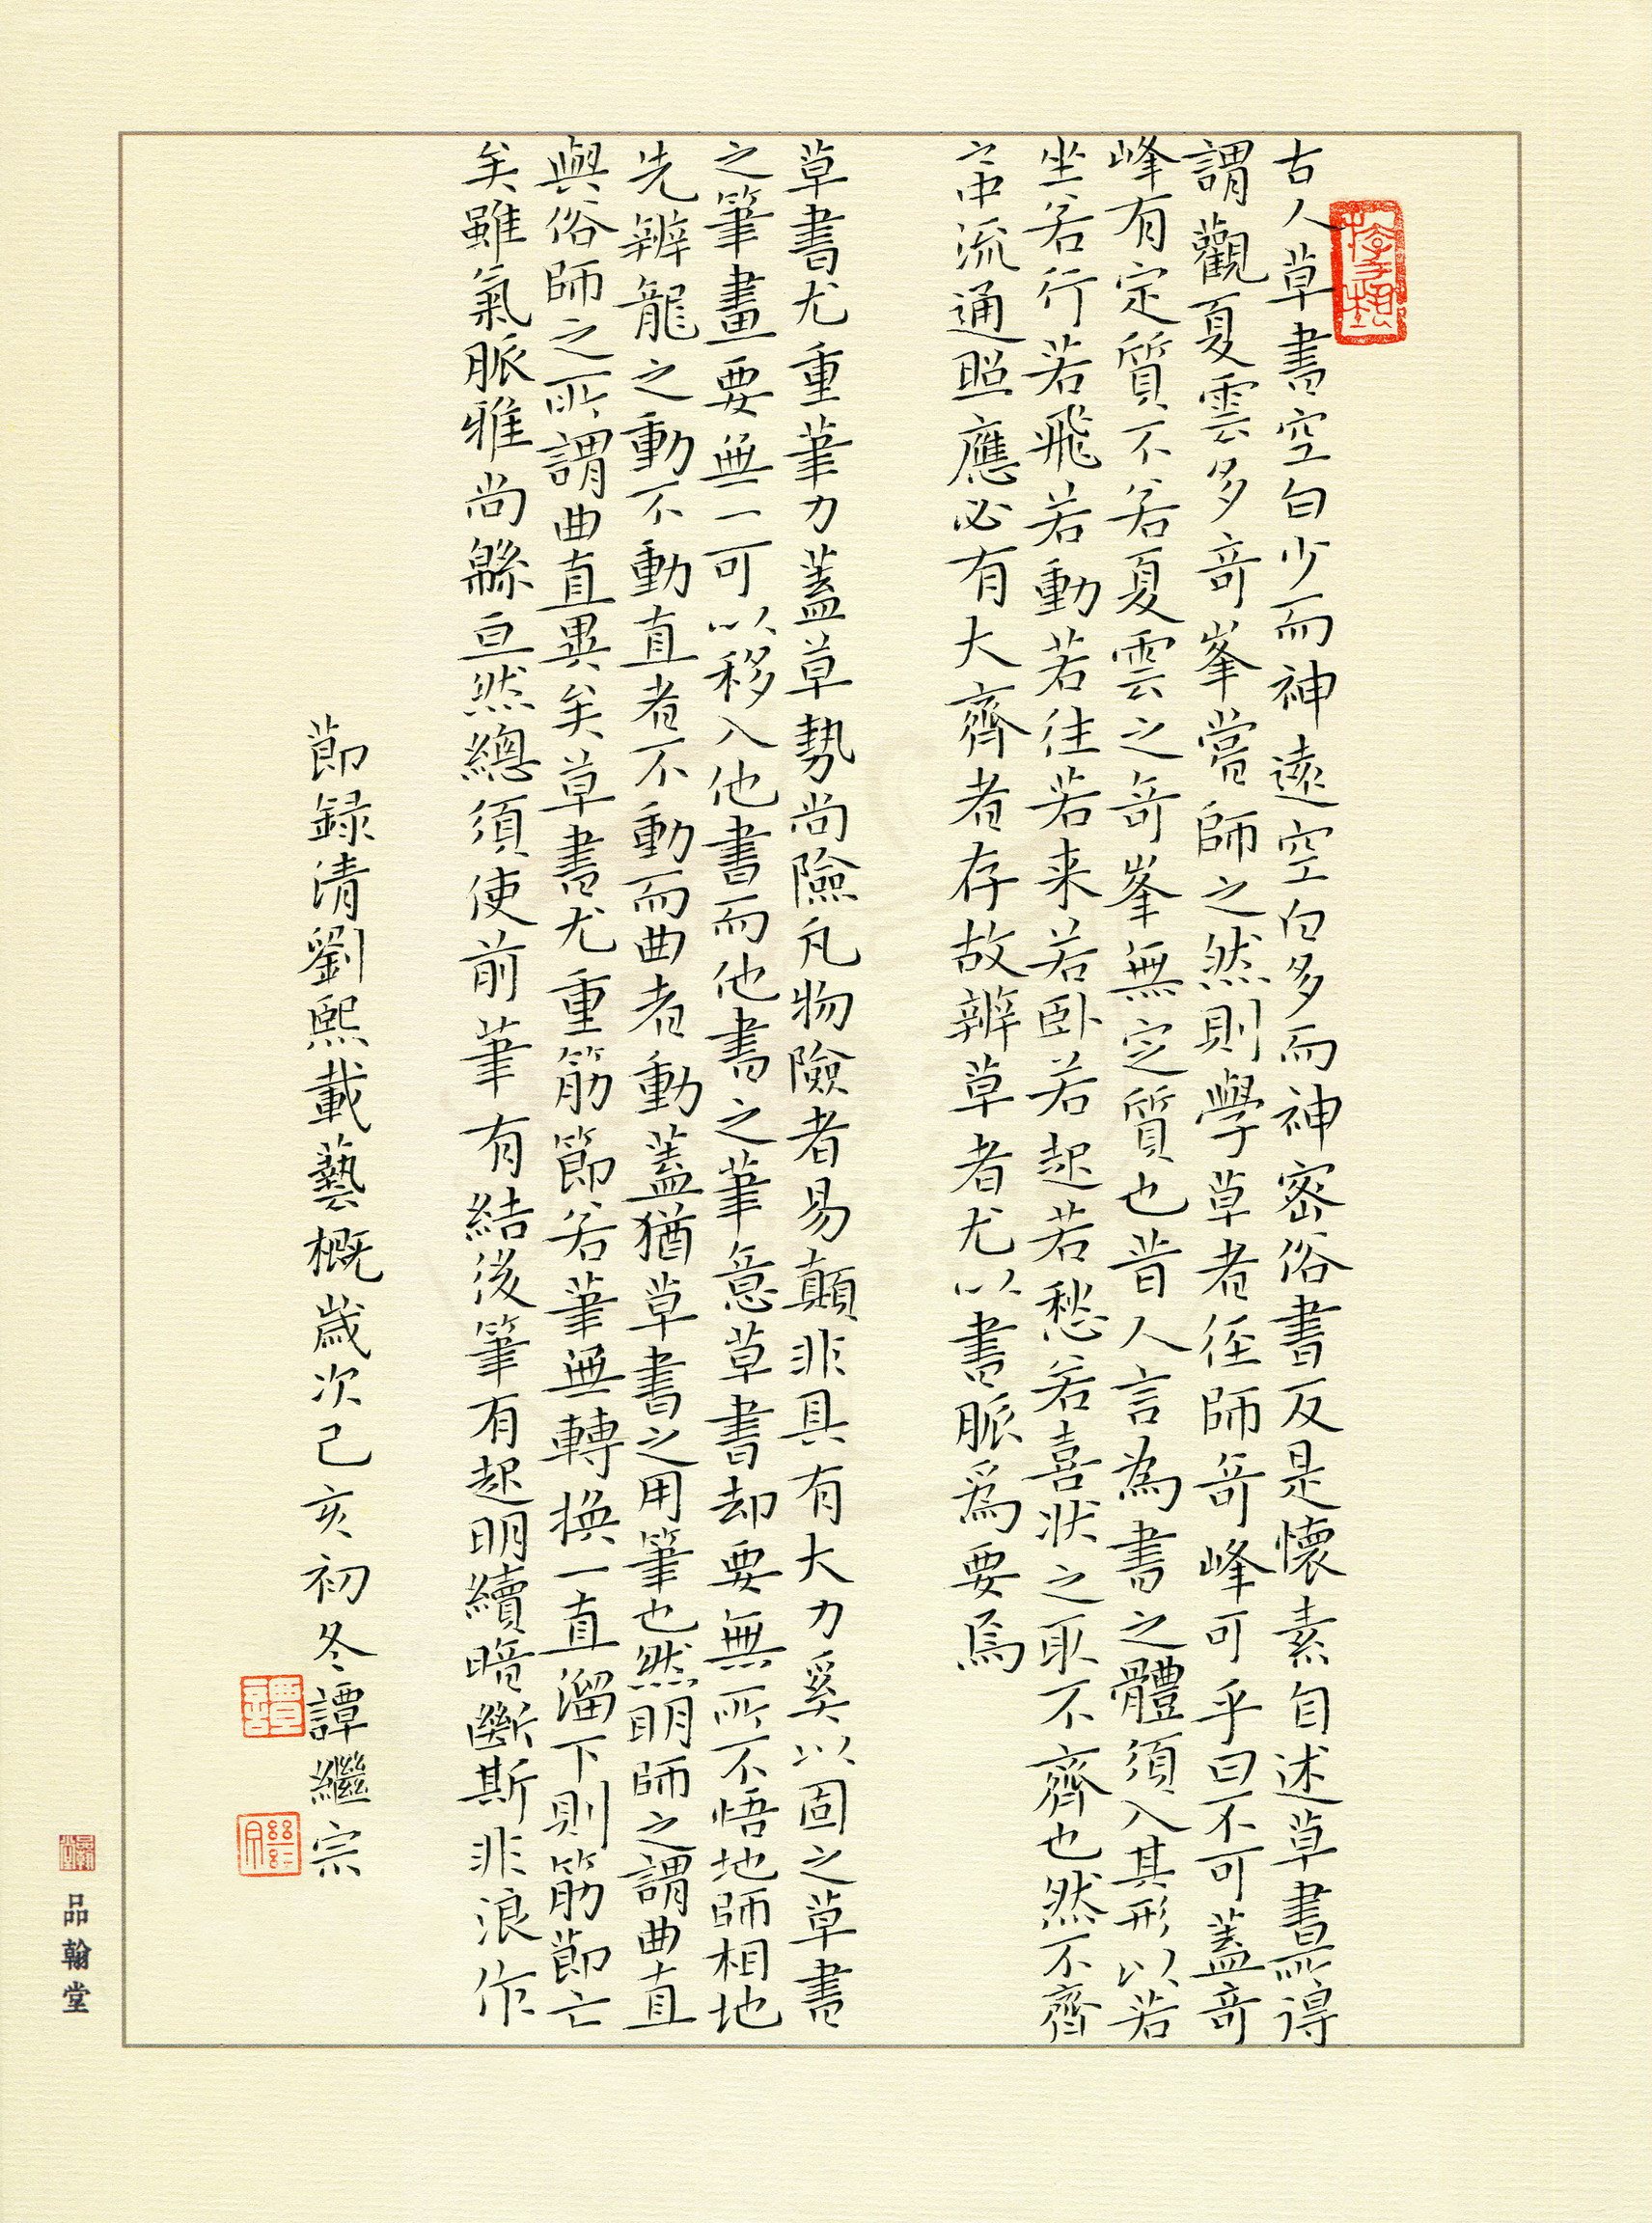 古人草書空白少而神遠空白多而神密俗書反是懷素自述草書所得
謂觀夏雲多奇峯嘗師之然則學草者徑師奇峰可乎曰不可蓋奇
峰有定質不若夏雲之奇峯無定質也昔人言為書之體須入其形以若
坐若行若飛若動若往若来若卧若起若愁若喜狀之取不齊也然不齊
之中流通照應必有大齊者存故辨草者尤以書脈爲要焉
草書尤重筆力蓋草勢尚險凡物險者易顛非具有大力奚以固之草書
之筆畫要無一可以移入他書而他書之筆意草書却要無所不悟地師相地
先辨龍之動不動直者不動而曲者動蓋猶草書之用筆也然明師之謂曲直
與俗師之所謂曲直異矣草書尤重筋節若筆無轉換一直溜下則筋節亡
矣雖氣脈雅尚緜亘然總須使前筆有結後筆有起明續暗斷斯非浪作
節録清劉熙載藝概歲次己亥初冬譚繼宗
品翰堂